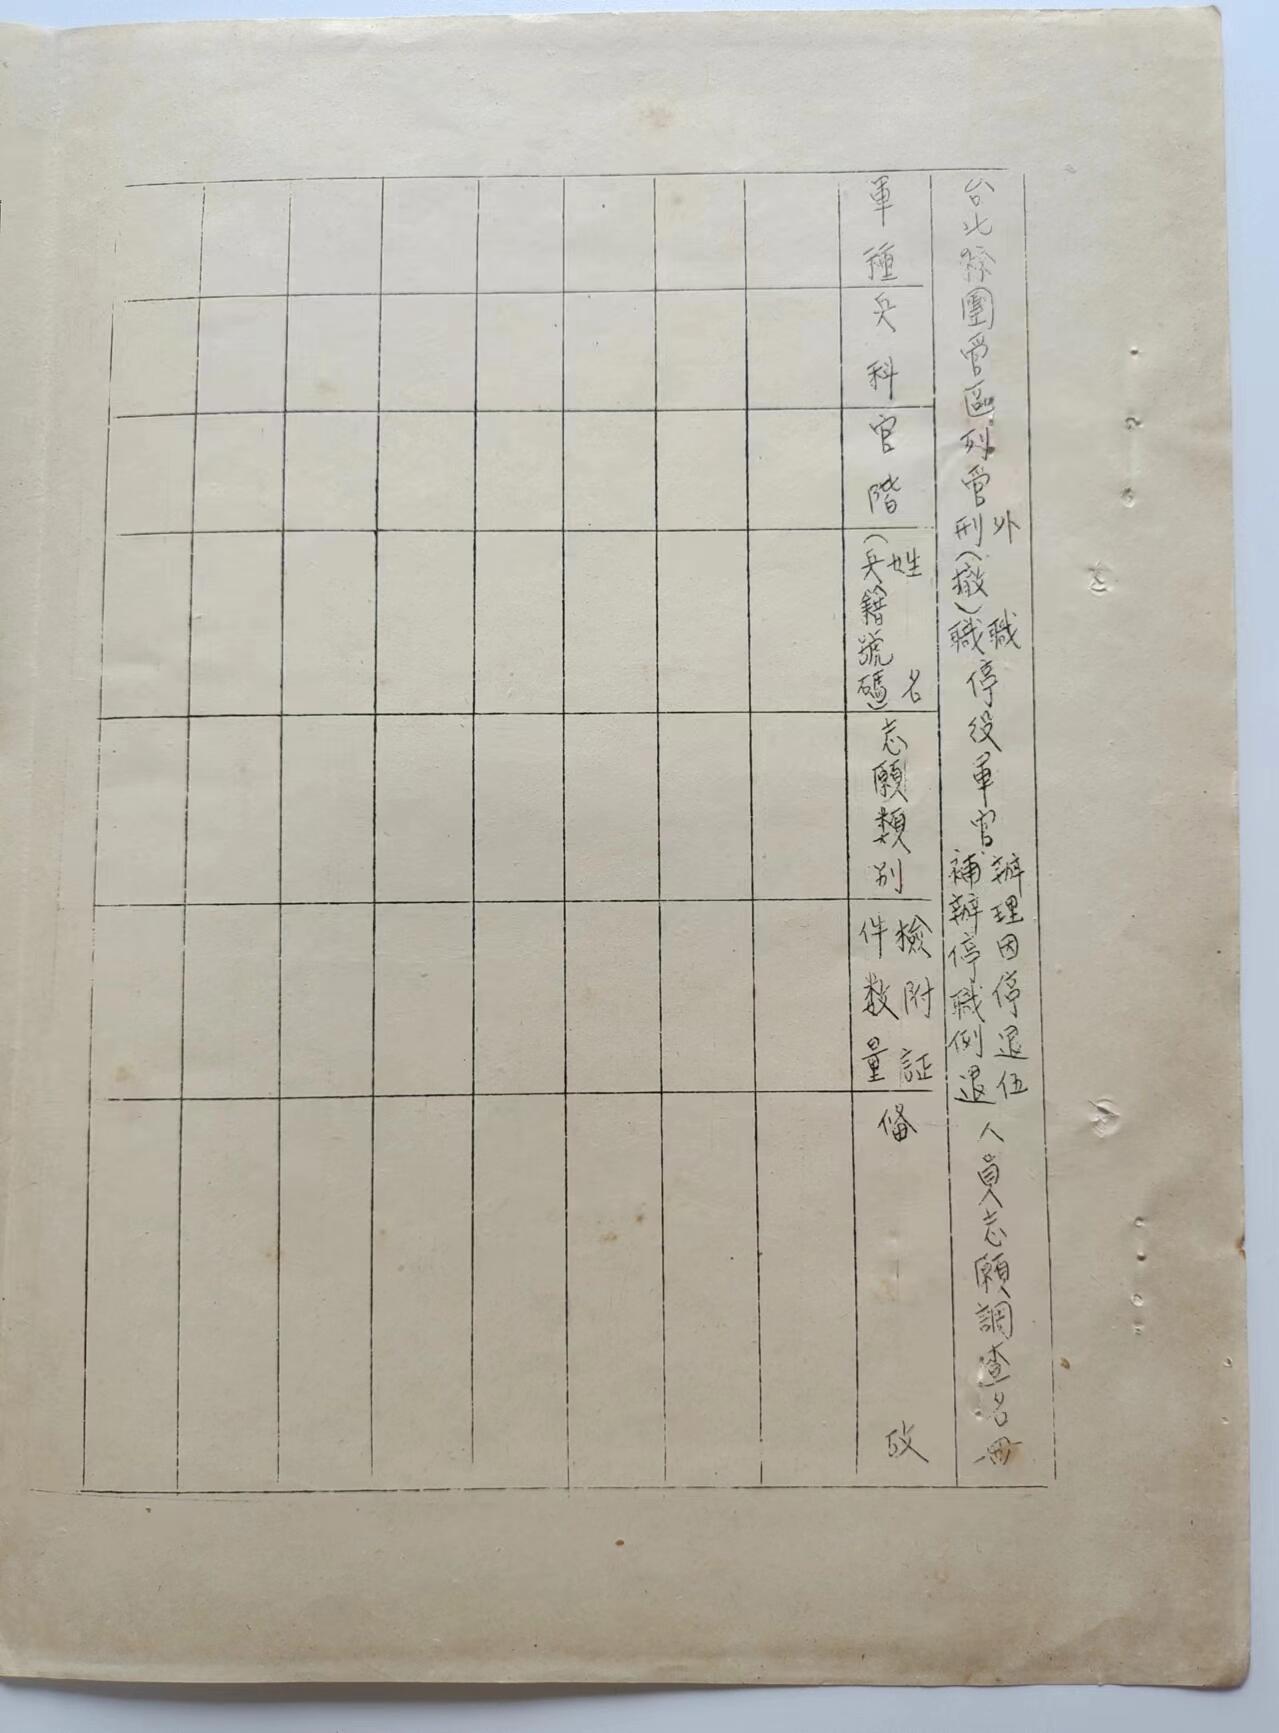 台北縣團管區列管
外職
刑(撤)職
停役軍官
辦理因停退伍
補辦停職例退
人員志願調查名冊
軍種
兵科
官階
姓名
(兵籍號碼)
志願類別
檢附証
件数量
俻攷